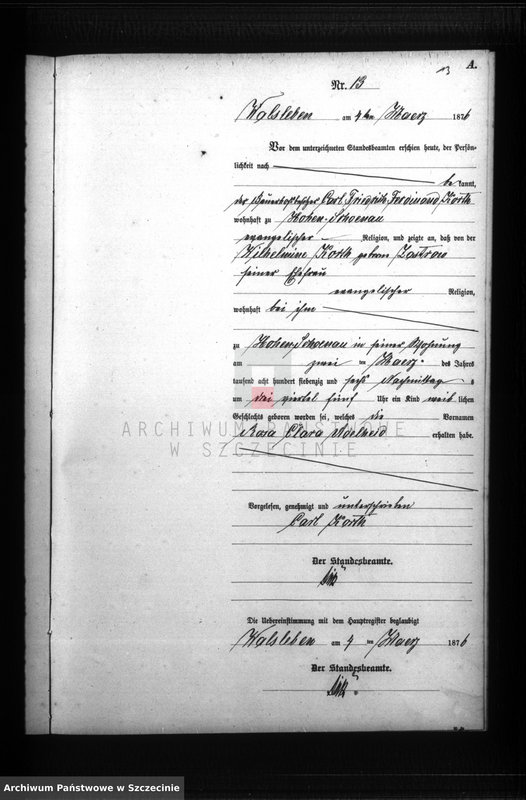 A.
13
Nr. 13
Walsleben am 4 ten Maerz 1876
Vor dem unterzeichneten Standesbeamten erschien heute, der Persön-
lichkeit nach
be kannt,
der Bauerhofbesitzer Carl Friedrich Ferdinand Korth
wohnhaft zu Hohen-Schoenau
evangelischer Religion, und zeigte an, daß von der
Wilhelmine Korth geboren Zastrow
seiner Ehefrau
evangelischer Religion,
wohnhaft bei ihm
zu Hohen-Schoenau in seiner Wohnung
am zwei ten Maerz des Jahres
tausend acht hundert siebenzig und sechs Nachmittag s
um drei viertel fünf Uhr ein Kind weib lichen
Geschlechts geboren worden sei, welches die Vornamen
Rosa Clara Adelheid erhalten habe.
ARCHIWUM PAŃSTWOWE
W SZCZECINIE
Vorgelesen, genehmigt und unterschrieben
Carl Korth
Der Standesbeamte.
Die Uebereinstimmung mit dem Hauptregister beglaubigt
Walsleben am 4 ten Maerz 1876
Der Standesbeamte.
Archiwum Państwowe w Szczecinie